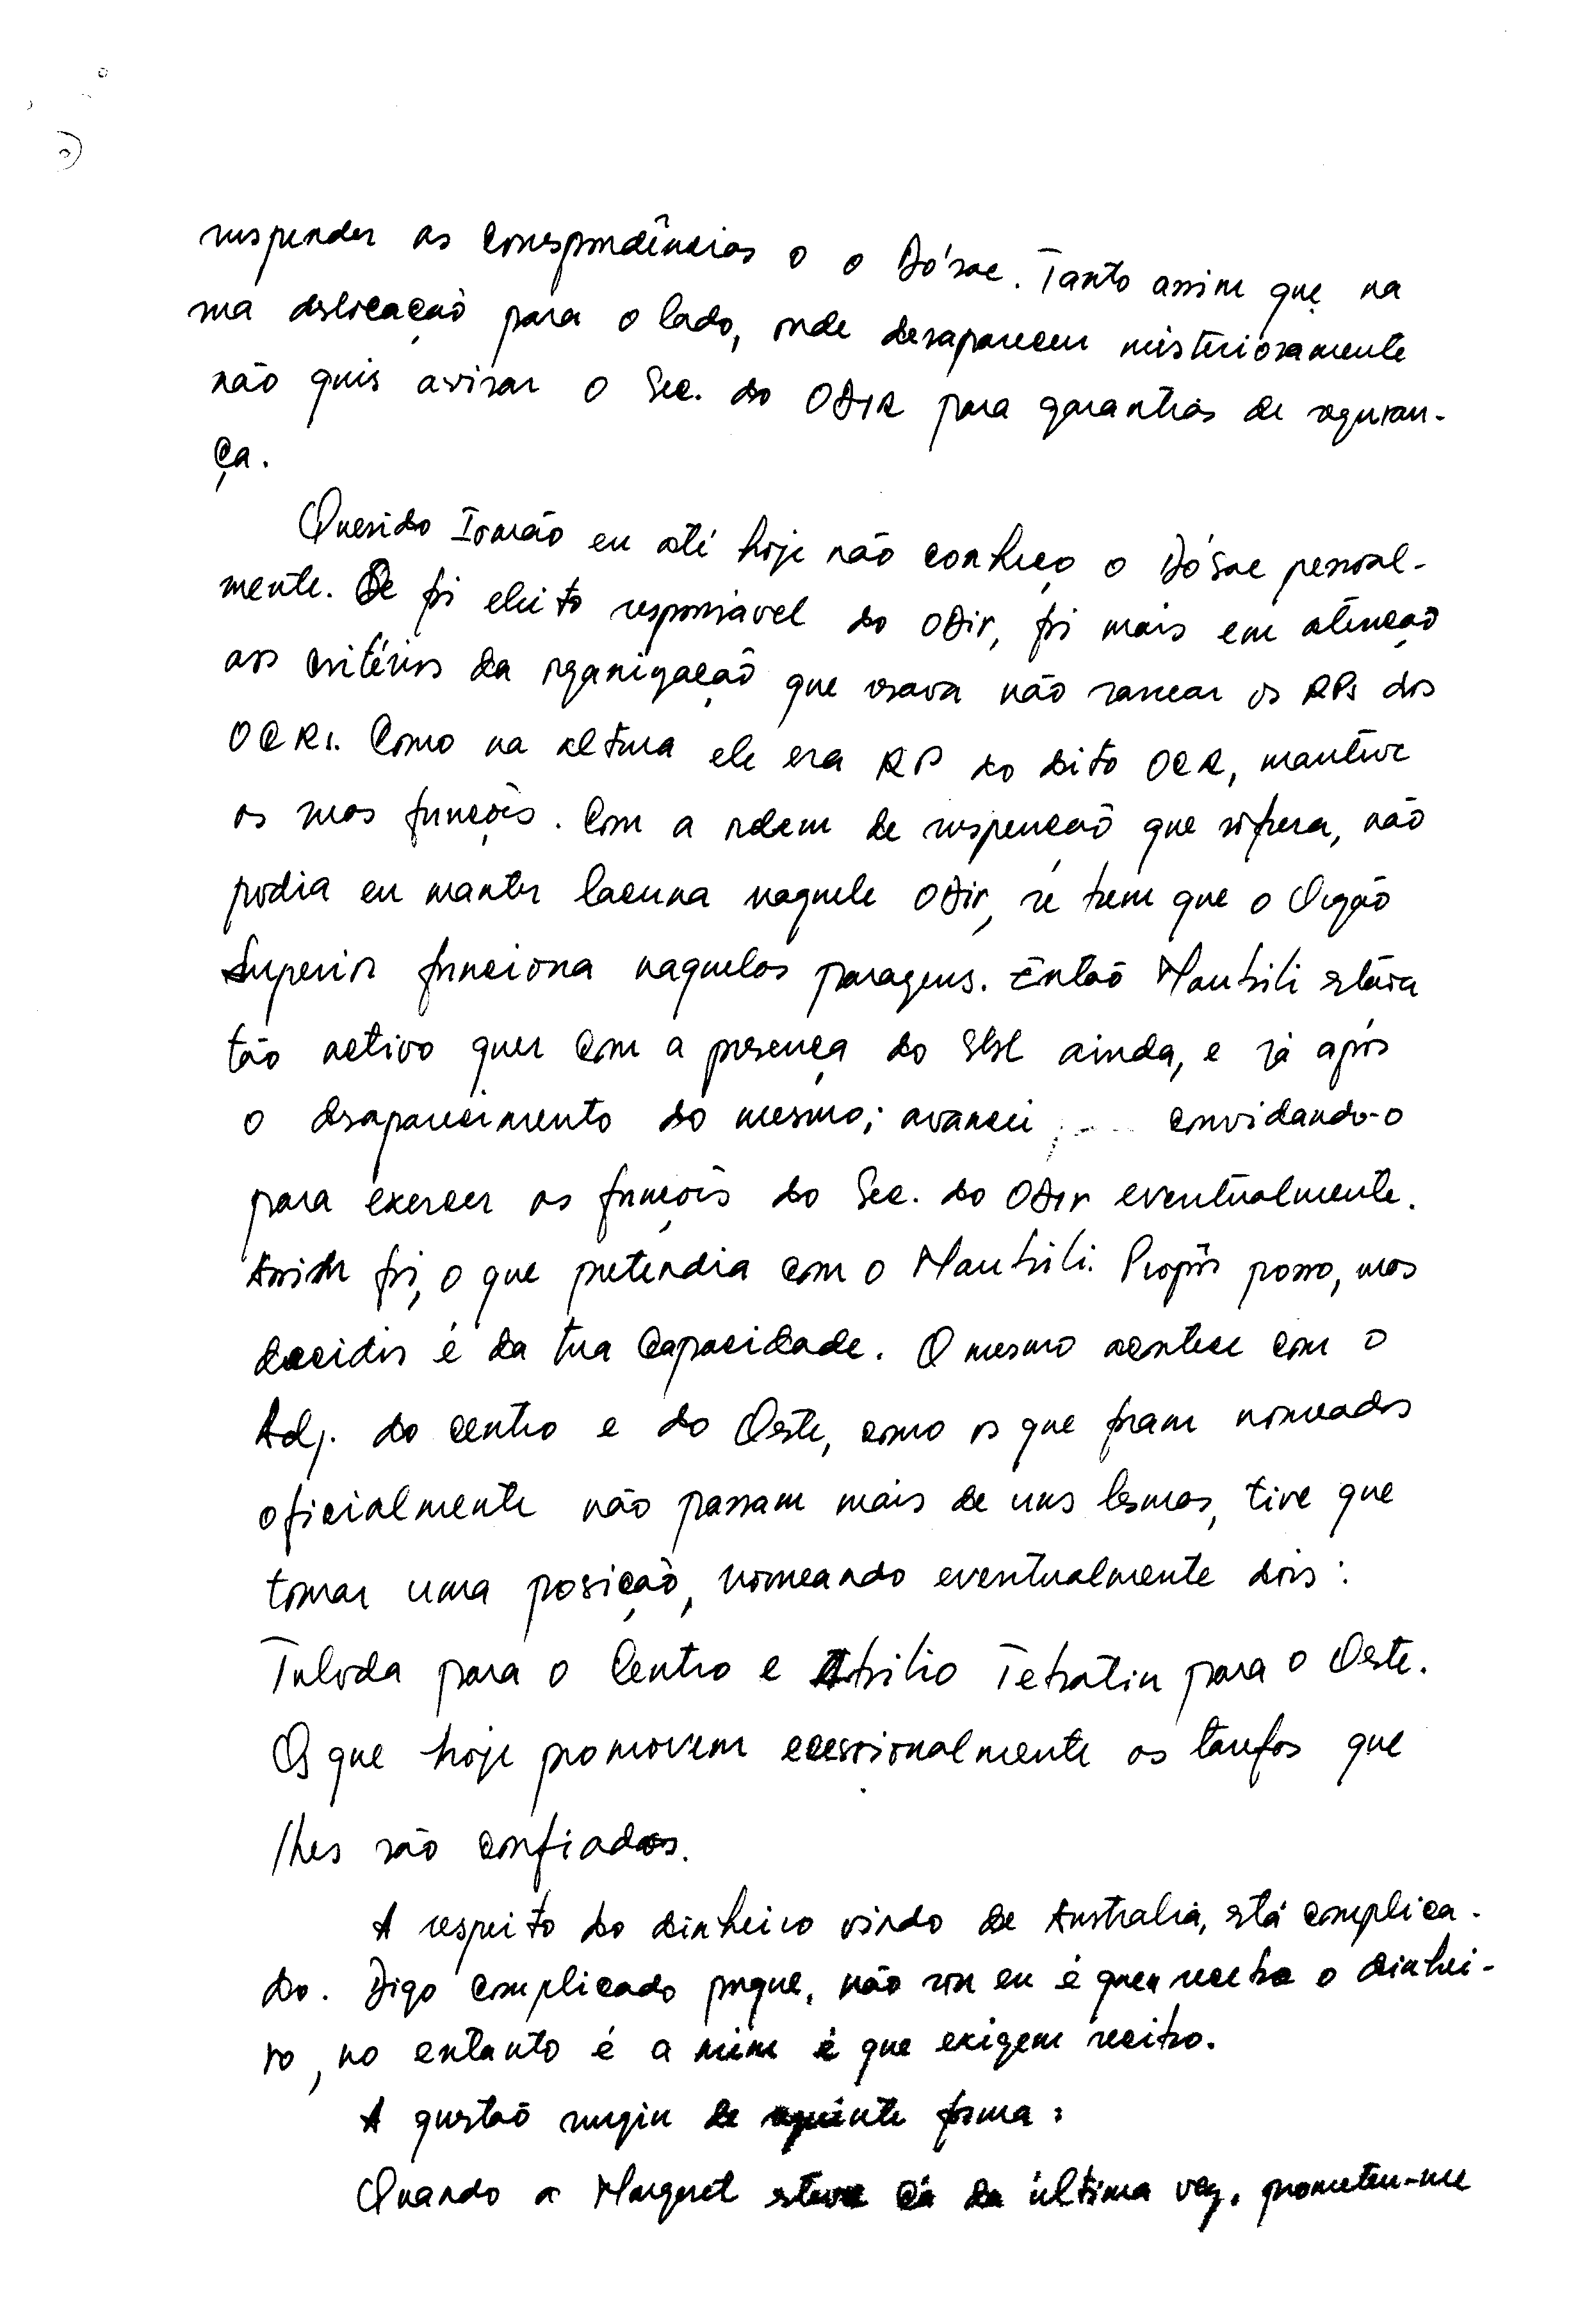 suspender as correspondências o o Dó'sae. Tanto assim que na
sua deslocação para o lado, onde desapareceu misteriosamente
não quis avisar o Sec. do ODIR para garantias de seguran-
ça.
Querido Irmão eu até hoje não conheço o DóSae pessoal-
mente. Se foi eleito responsável do ODir, foi mais em atenção
aos critérios da organização que usava não sanear os RPs dos
OCRs. Como na altura ele era RP do dito OCR, mantive
as suas funções. Com a ordem de suspenção que sofrera, não
podia eu manter lacuna naquele ODir, se bem que o Orgão
Superior funciona naquelas paragens. Então Maubili estava
tão activo quer com a presença do ainda, e já após
o desaparecimento do mesmo; avancei convidando-o
para exercer as funções do Sec. do ODir eventualmente.
Assim foi, o que pretendia com o Maubili. Propôr posso, mas
decidir é da tua capacidade. O mesmo acontece com o
Adj. do centro e do Oeste, como os que foram nomeados
oficialmente não passam mais de uns lesmas, tive que
tomar uma posição, nomeando eventualmente dois:
Tuloda para o Centro e Abilio Tebratin para o Oeste.
Os que hoje promovem ecessionalmente as tarefas que
lhes são confiadas.
A respeito do dinheiro vindo de Australia, está complica-
do. Digo complicado porque, não sou eu é quem receba o dinhei-
ro, no entanto é a mim é que exigem recibo.
A questão surgiu de seguinte forma:
Quando a Margaret esteve cá da última vez, prometeu-me